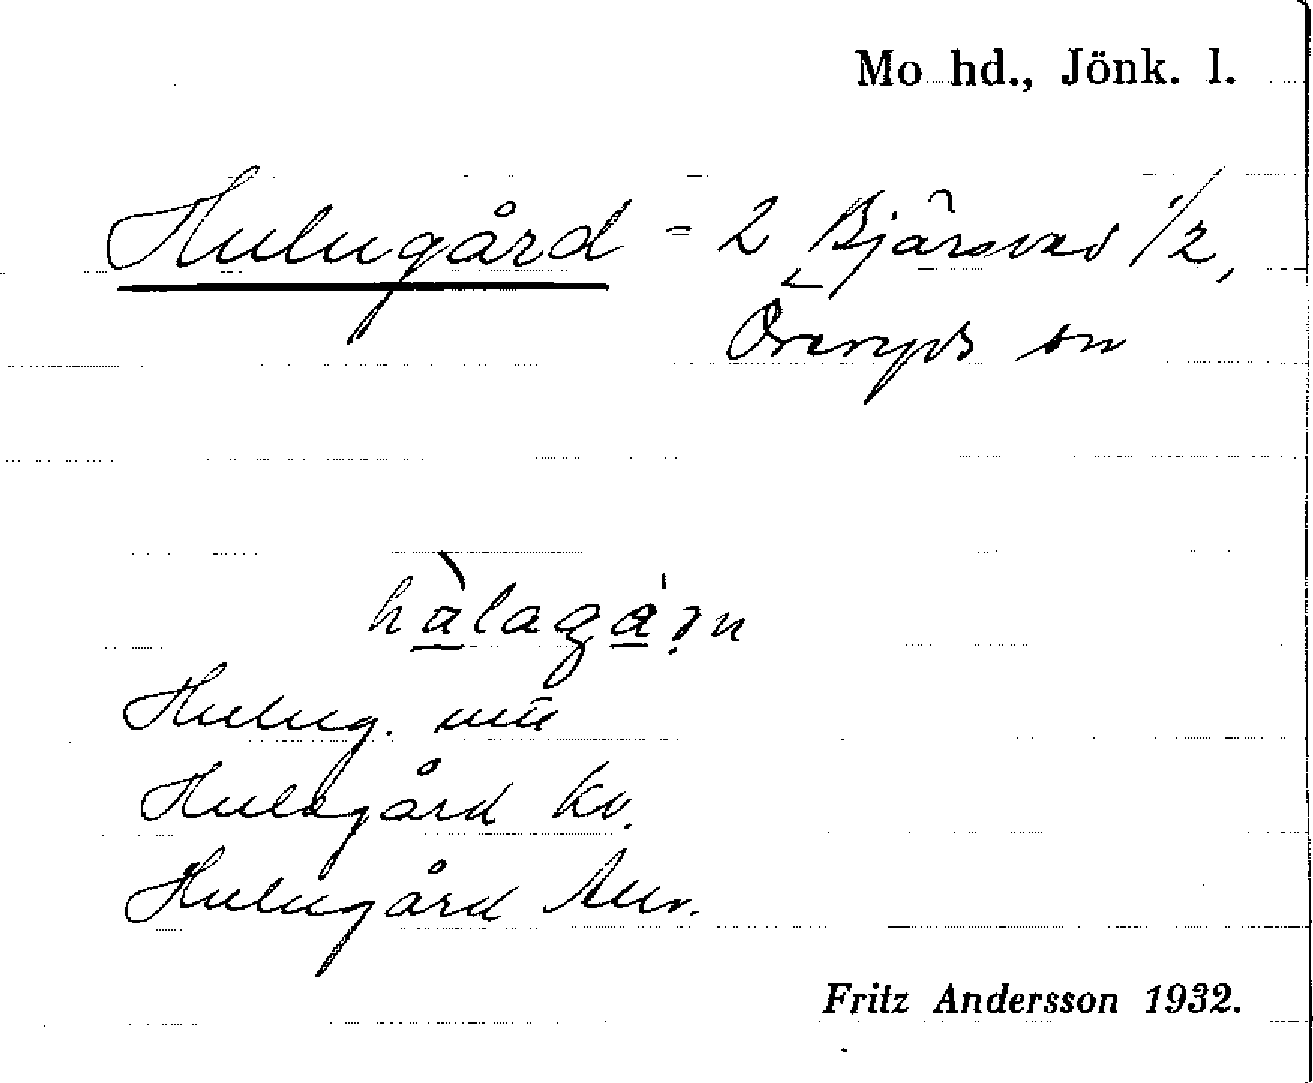 Mo hd., Jönk. l.
Hulugård = 2 Bjärsved 1/2,
Öreryds sn
hàlagá.rn
Hulug.
Hulugård kv.
Hulugård
Fritz Andersson 1932.